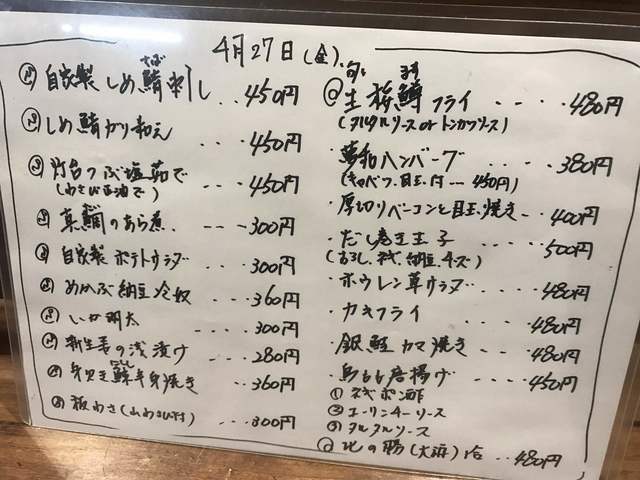 4月27日(金)
自家製 しめ鯖刺し ‥450円
さば
しめ鯖ガリ和え ‥450円
灯台つぶ塩茹で ‥450円
(わさび正油で)
真鯛のあら煮 ---300円
自家製 ポテトサラダ ‥300円
めかぶ納豆冷奴 ‥360円
いか明太 ‥‥300円
新生姜の浅漬け ‥280円
身欠き鰊半身焼き ‥360円
にしん
板わさ(山わさび付) ‥300円
旬
生桜鱒フライ ‥‥480円
ます
(タルタルソース or トンカツソース)
・夢和ハンバーグ ‥‥380円
(キャベツ、目玉付 --- 450円)
・厚切りベーコンと目玉焼き ‥400円
・だし巻玉子 ‥‥500円
(おろし、ネギ、納豆、チーズ)
・ホウレン草サラダ ‥‥480円
・カキフライ ‥‥480円
・銀鮭カマ焼き ‥‥480円
・鳥もも唐揚げ ‥‥450円
① ネギポン酢
② ユーリンチーソース
③ タルタルソース
北の勝(大海)1合 ‥480円